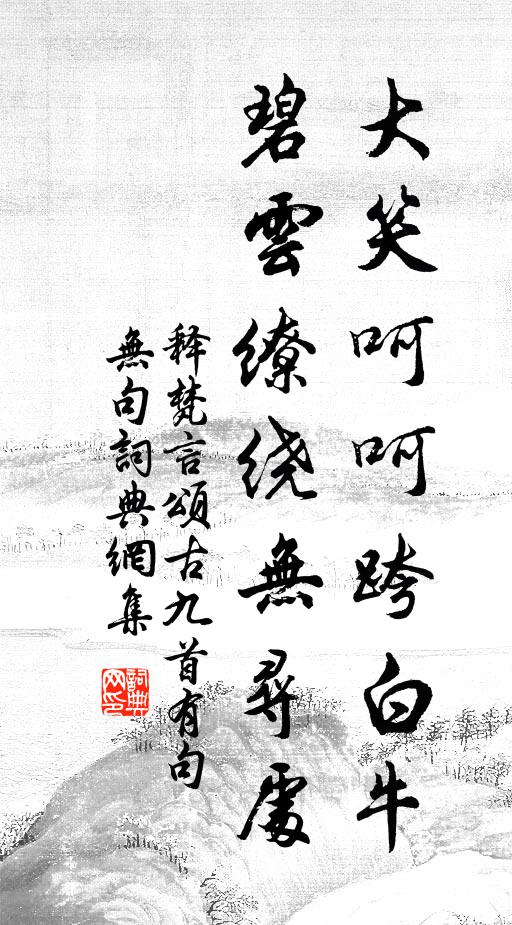 大笑呵呵跨白牛
碧雲繚绕無尋處
释梵言頌古九首有句
無句詞典網集
詞典网印